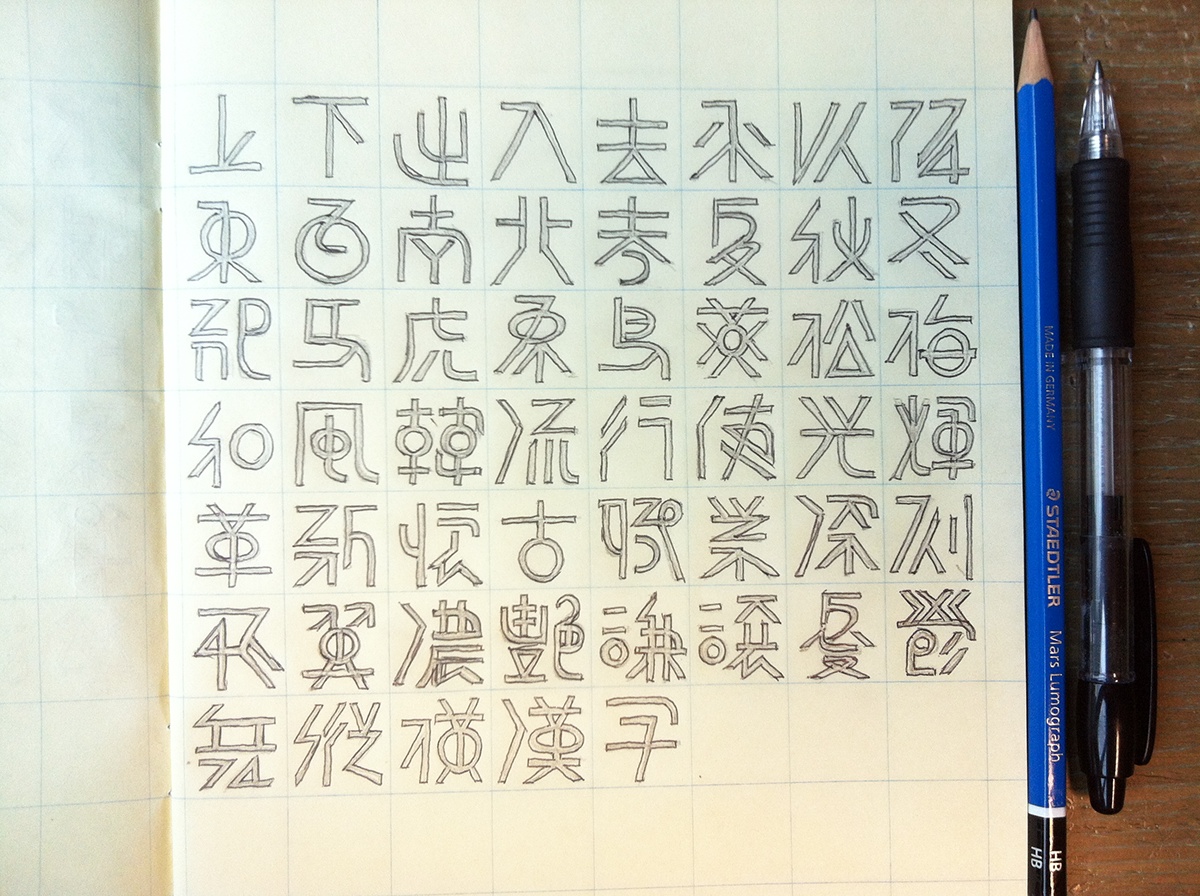 上下出入去来以降
東西南北春夏秋冬
龍馬虎鳥松梅
和風韓流行使光輝
革新懐古職業深刻
飛翼濃艶謙譲憂鬱
縦横漢字
MADE IN GERMANY STAEDTLER Mars Lumograph HB
HB